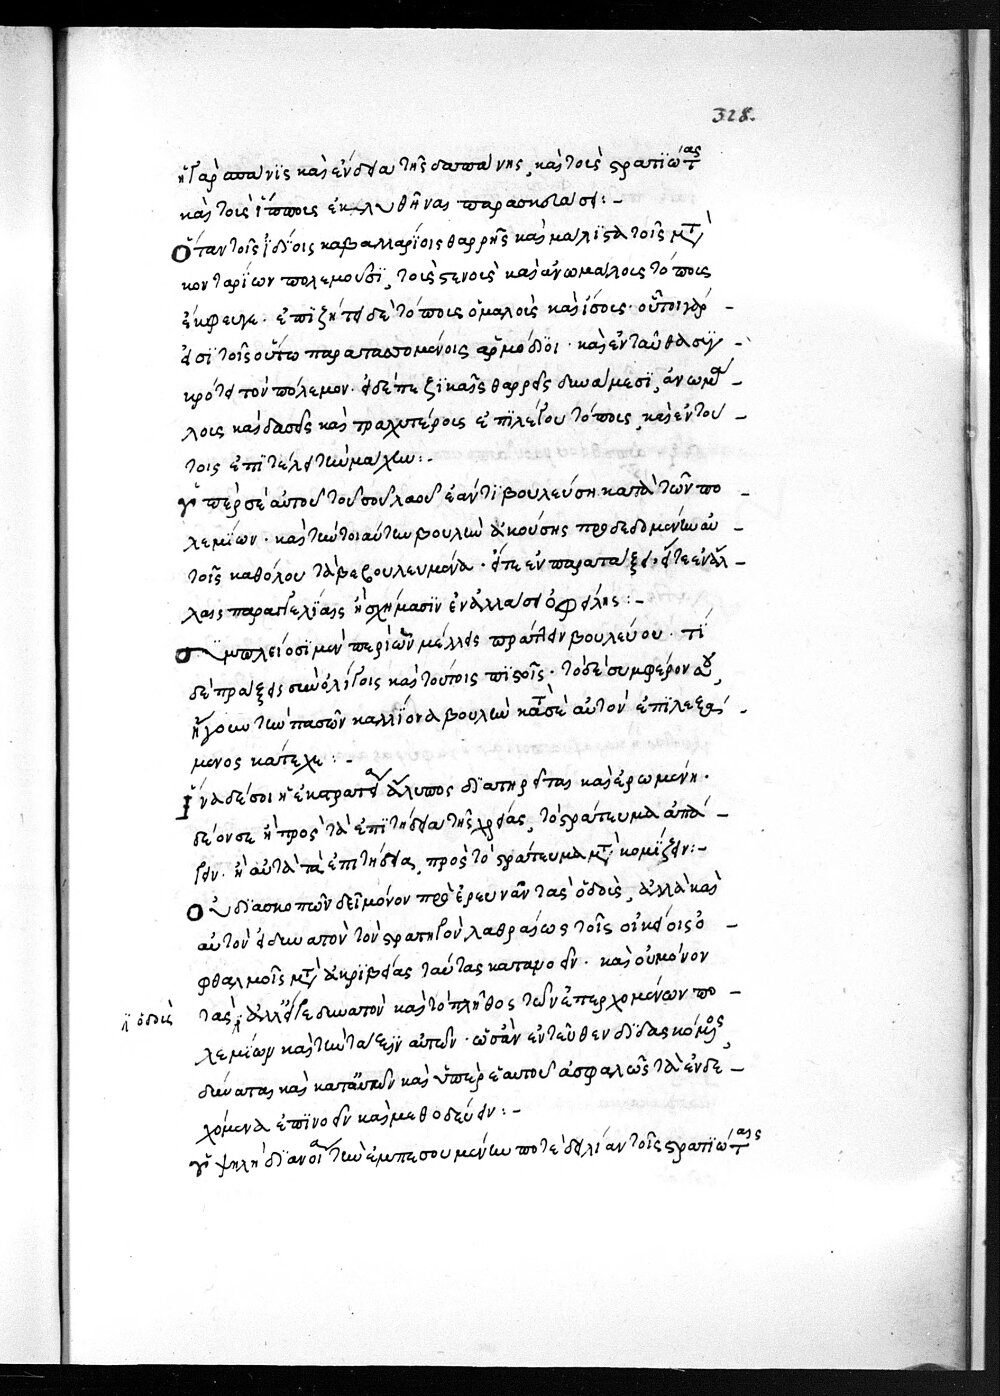 328.
ἡ γὰρ σπάνις καὶ ἔνδεια τῆς δαπάνης, καὶ τοὺς στρατιώτας
καὶ τοὺς ἵππους ἐκλυθῆναι παρασκευάσει :-
Ὅταν τοῖς ἰδίοις καβαλλαρίοις θαρρῇς καὶ μάλιστα τοῖς μετὰ
κονταρίων πολεμοῦσι, τοὺς στενοὺς καὶ ἀνωμάλους τόπους
ἔκφευγε. ἐπιζήτει δὲ τόπους ὁμαλοὺς καὶ ἴσους. οὗτοι γάρ
εἰσι τοῖς οὕτω παραταττομένοις ἁρμόδιοι. καὶ ἐνταῦθα συγ
κρότει τὸν πόλεμον. εἰ δὲ πεζικαῖς θαρρεῖς δυνάμεσι, ἀνωμά
λους καὶ δασεῖς καὶ τραχυτέρους ἐπιλέγου τόπους, καὶ ἐν τού
τοις ἐπιτέλει τὴν μάχην :-
Ὑπὲρ σὲ αὐτοῦ τοῦ σοῦ λαοῦ ἐὰν τι βουλεύσῃ κατὰ τῶν πο
λεμίων. καὶ τὴν τοιαύτην βουλὴν ἀκούσῃς προδεδομένην αὐ
τοῖς καθόλου τὰ βεβουλευμένα. εἴτε ἐν παρατάξει, εἴτε ἐν ἄλ
λαις παραγγελίαις ἢ σχήμασιν ἐναλλάσσειν ὀφείλῃς :-
Σὺμ πλείοσι μὲν περὶ ὧν μέλλεις πράττειν βουλεύου. τί
δὲ πράξεις σὺν ὀλίγοις καὶ τούτοις πιστοῖς. τὸ δὲ συμφέρον αὐτοῦ,
ἤγουν τὴν πασῶν καλλίονα βουλὴν κατὰ σὲ αὐτὸν ἐπιλεξά
μενος κάτεχε :-
Ἵνα δέ σοι ἡ ἐκστρατεία ἄλυπος διατηρεῖται καὶ ἐρωμένη.
δέον σε ἢ πρὸς τὰ ἐπιτήδεια τῆς χρείας, τὸ στράτευμα ἀπά
γειν. ἢ αὐτὰ τὰ ἐπιτήδεια, πρὸς τὸ στράτευμα μετακομίζειν :-
Οὐ διὰ σκοπῶν δεῖ μόνον προερευνᾶν τὰς ὁδούς, ἀλλὰ καὶ
αὐτὸν εἰ δυνατὸν τὸν στρατηγὸν λαθραίως τοῖς οἰκείοις ὀ
φθαλμοῖς μετὰ ἀκριβείας ταύτας κατανοεῖν. καὶ οὐ μόνον
τὰς ἀλλ' εἴγε δυνατὸν καὶ τὸ πλῆθος τῶν ἐπερχομένων πο
ἢ ὁδοὺς
λεμίων καὶ τὴν τάξιν αὐτῶν. ὡσὰν ἐντεῦθεν
δύναται καὶ κατ' αὐτῶν καὶ ὑπὲρ ἑαυτοῦ ἀσφαλῶς τὰ ἐνδε
χόμενα ἐπινοεῖν καὶ μεθοδεύειν :-
Ὑψηλὴ διάνοια τὴν ἐμπεσουμένην ποτὲ δειλίαν τοῖς στρατιώταις